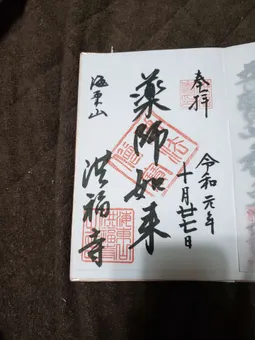 奉拝
令和元年
十月廿七日
藥師如来
海東山
洪福寺